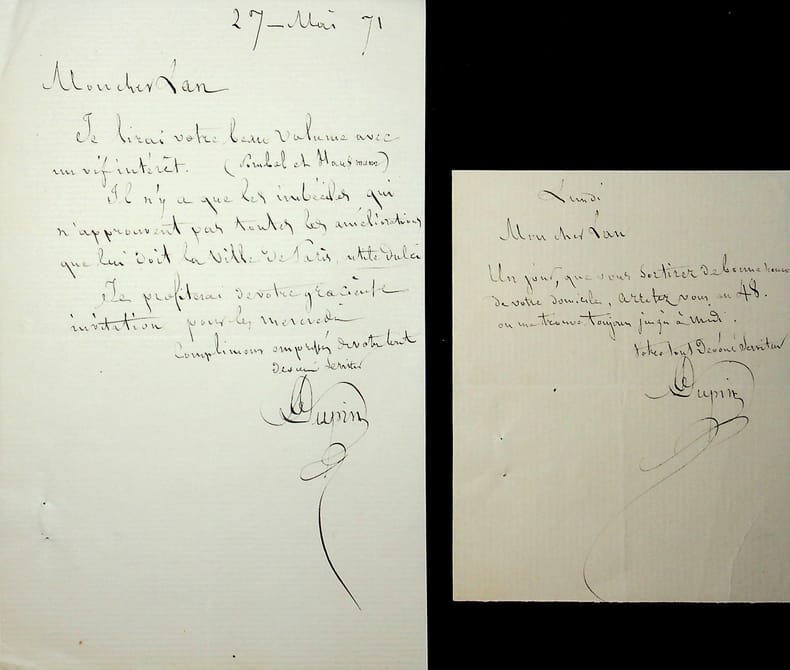 27 - Mai 71
Mon cher Lan
Je lirai votre beau volume avec
un vif intérêt. (
Il n'y a que les imbéciles qui
n'approuvent pas toutes les améliorations
que lui doit la Ville de Paris,
Je profiterai de votre gracieuse
invitation pour les mercredis
Complimens empressés de votre tout
dévoué serviteur
Dupin
Lundi
Mon cher Lan
Un jour, que vous sortirez de bonne heure
de votre domicile, arretez vous au 48.
on me trouve toujours jusqu'à midi.
Votre tout Dévoué Serviteur
Dupin